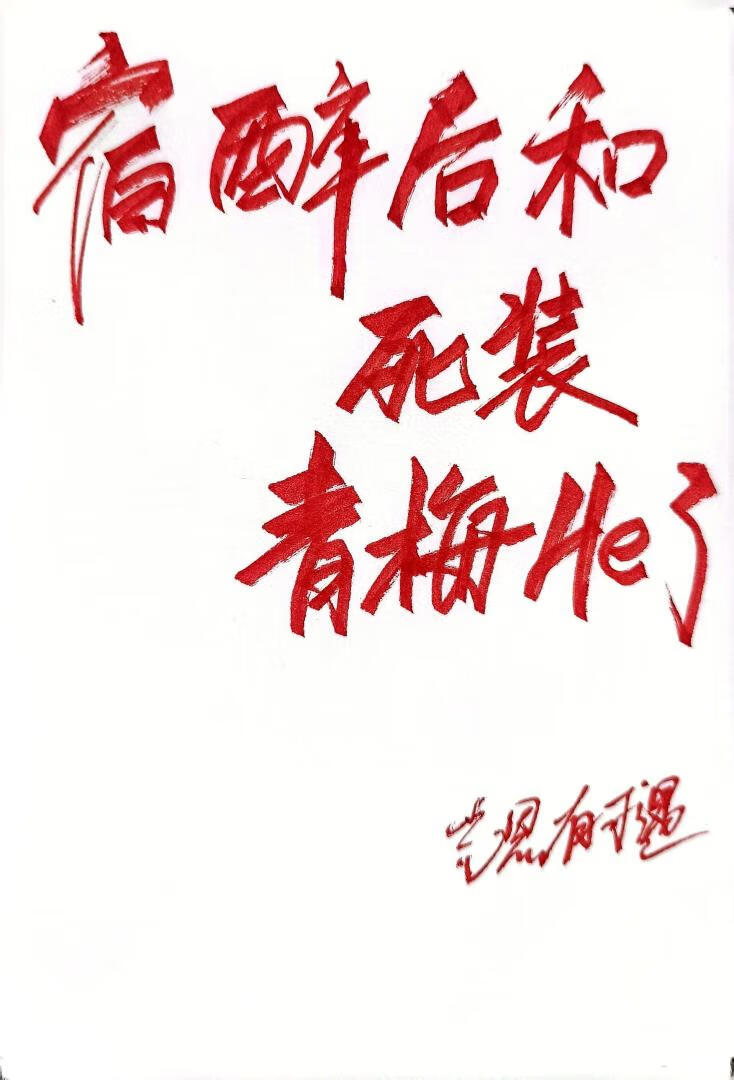 宿醉后和
死装
青梅He了
有